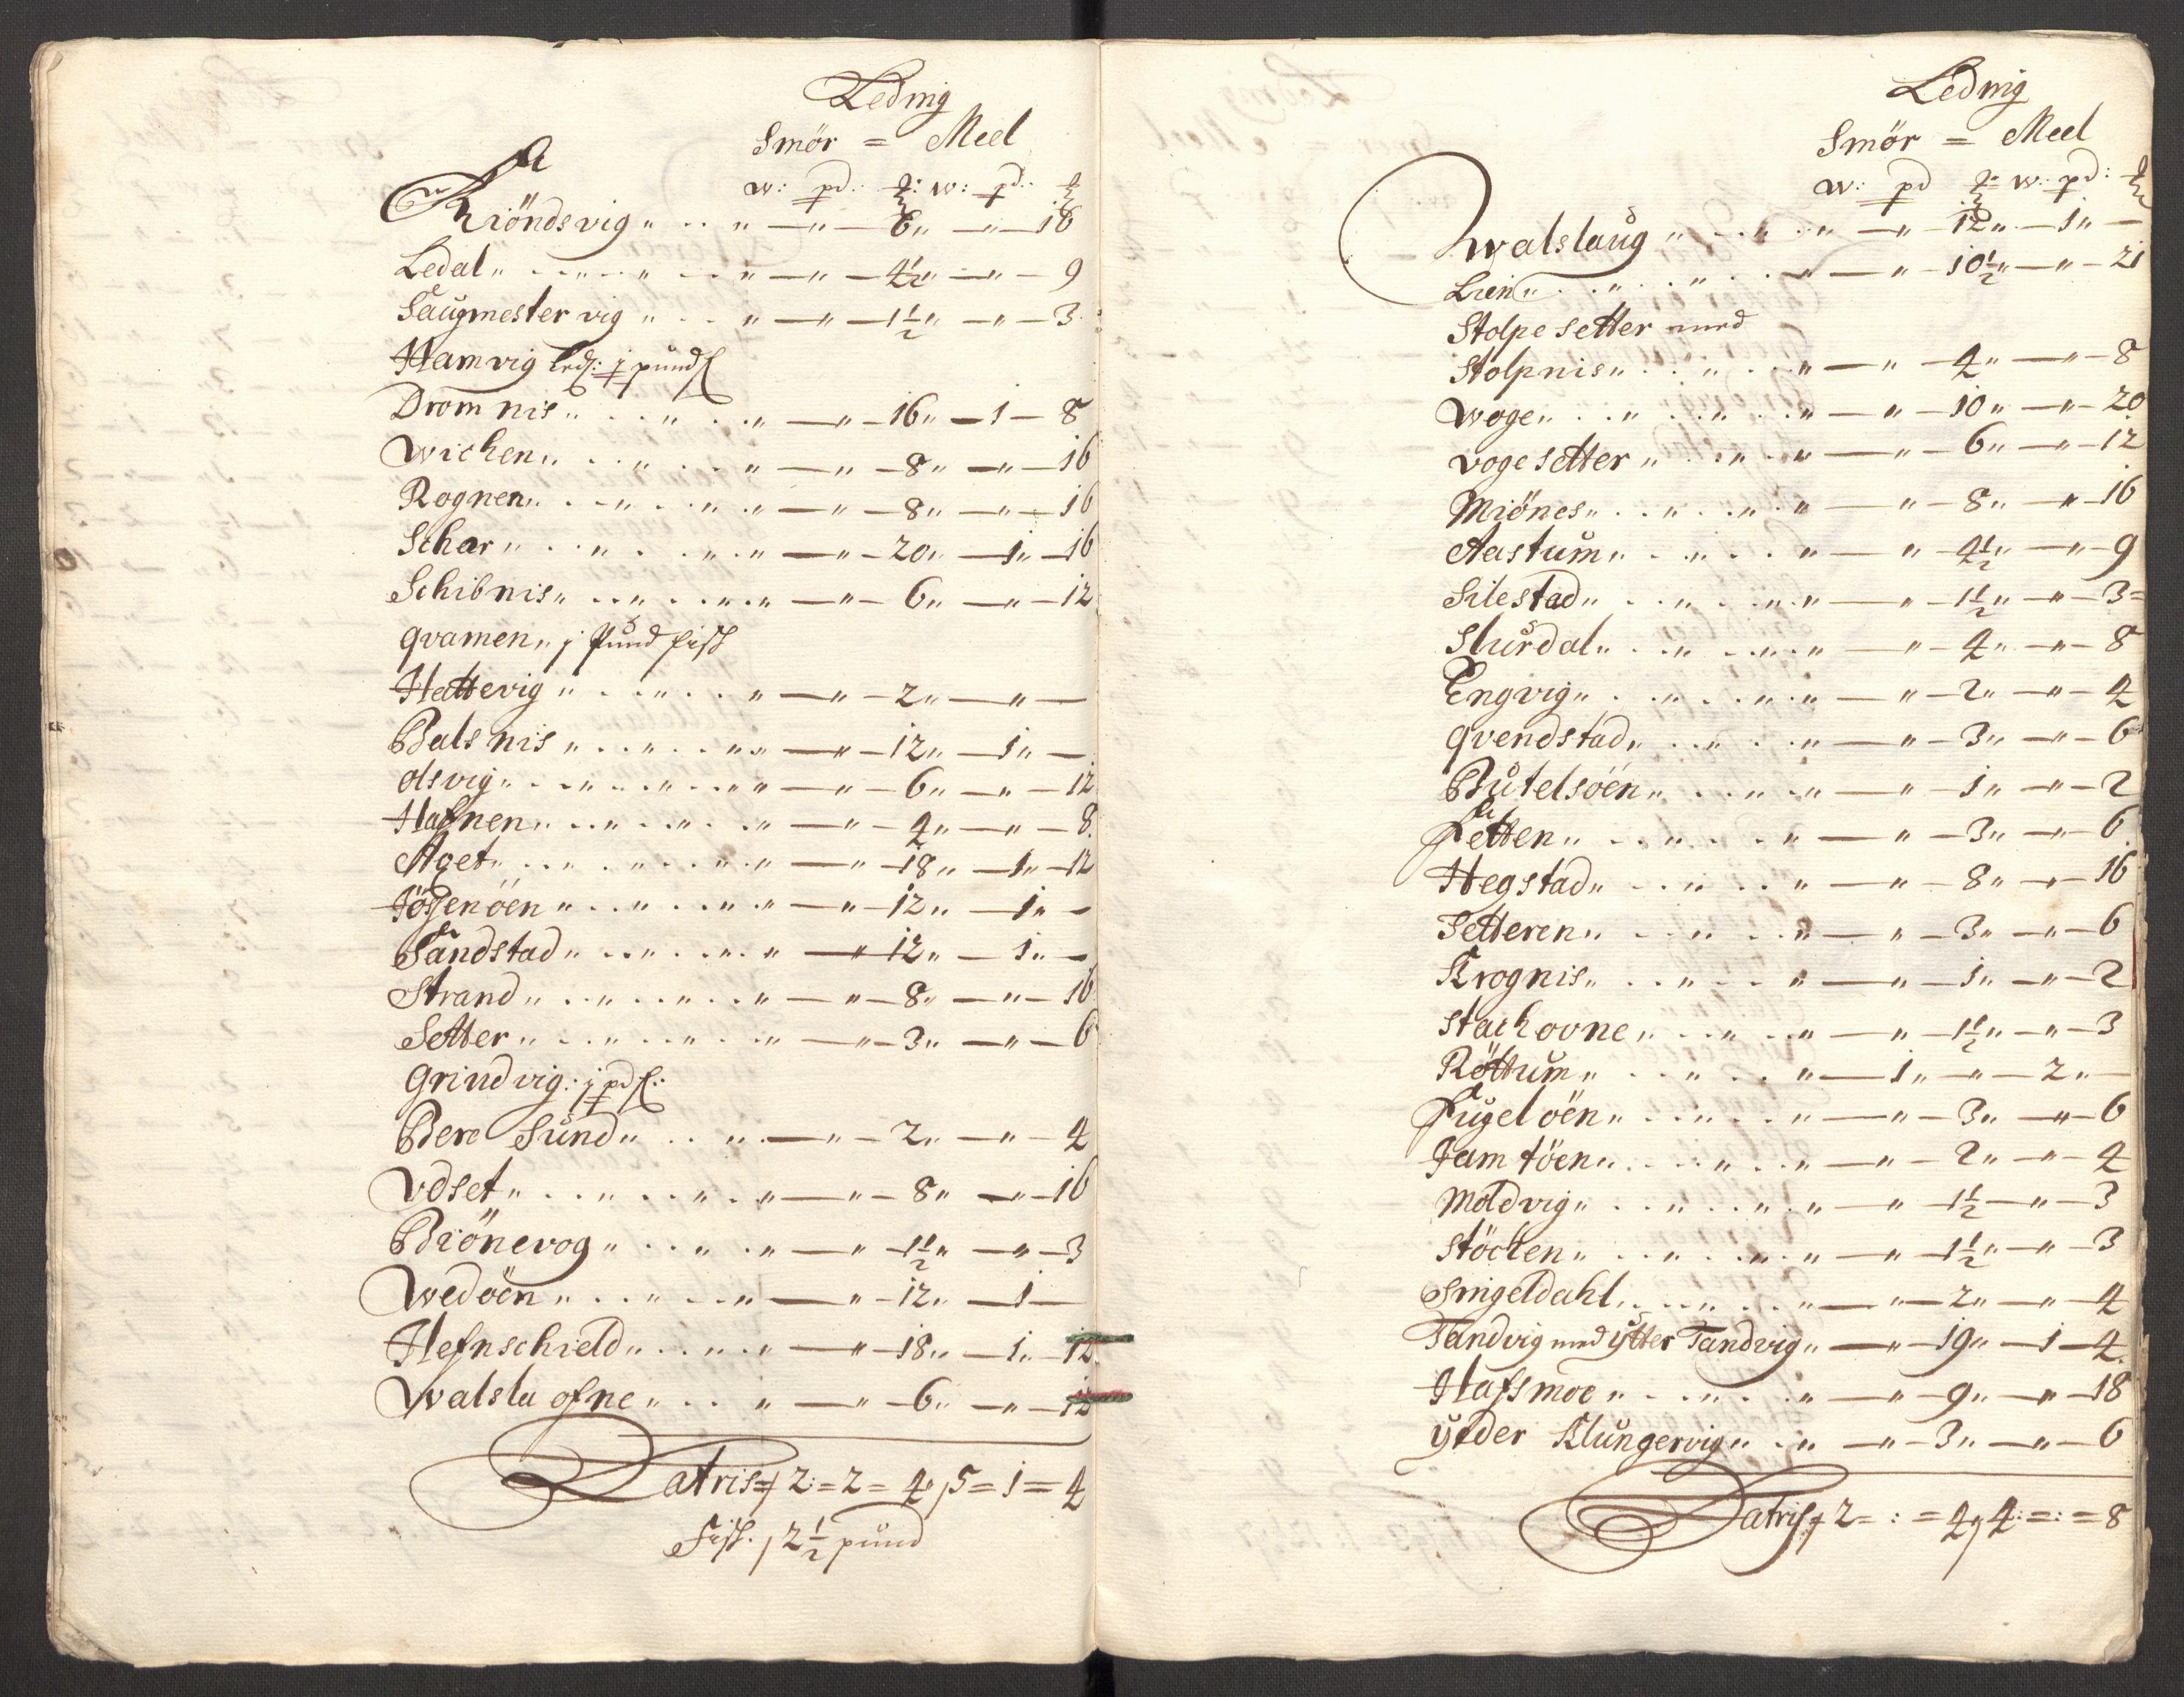 Leding
Smör = Meel
w: pd: ℔: w: pd: ℔
Kiöndsvig „ . . „ — „ — 8 „ — „ — 16
Ledal „ . . „ . . „ — „ — 4½ „ — „ — 9
Saugmestervig „ . . „ — „ — 1½ „ — „ — 3
Hamvig led: j pund f
Dromnis „ . . „ . . „ — „ — 16 „ — 1 — 8
Wichen „ . . „ . . „ — „ — 8 „ — „ — 16
Rognen „ . . „ . . „ — „ — 8 „ — „ — 16
Schar „ . . „ . . „ — „ — 20 „ — 1 „ — 16
Schibnis „ . . „ . . „ — „ — 6 „ — „ — 12
qvamen „ j pund fisk
Hattevig „ . . „ . . „ — „ — 2 „ — „ —
Balsnis „ . . „ . . „ — „ — 12 „ — 1 „ —
olsvig „ . . „ . . „ — „ — 6 „ — „ — 12
Hafnen „ . . „ . . „ — „ — 4 „ — „ — 8
Aget „ . . „ . . „ — „ — 18 „ — 1 „ — 12
Jössenöen „ . . „ . . „ — „ — 12 „ — 1 „ —
Sandstad „ . . „ . . „ — „ — 12 „ — 1 „ —
Strand „ . . „ . . „ — „ — 8 „ — „ — 16
Setter „ . . „ . . „ — „ — 3 „ — „ — 6
Grindvig: j pd f:
Bere Sund „ . . „ — „ — 2 „ — „ — 4
Vdset „ . . „ . . „ — „ — 8 „ — „ — 16
Biönevog „ . . „ . . — „ — 1½ „ — „ — 3
Wedöen „ . . „ . . „ — „ — 12 „ — 1 —
Hefnschield „ . . „ . . — „ — 18 „ — 1 „ — 12
Walsla ofne „ . . „ — „ — 6 „ — „ — 12
Latris 2 = 2 = 4, 5 = 1 = 4
Fisk. 2½ pund
Leding
Smör = Meel
w: pd ℔ w: pd: ℔
Walslaug „ . . „ — „ — 12 „ — 1 „ —
Lien „ . . „ . . „ — „ — 10½ „ — „ — 21
Stolpesetter med
Stolpnis „ . . „ . . „ — „ — 4 „ — „ — 8
Woge „ . . „ . . „ — „ — 10 „ — „ — 20
vogesetter „ . . „ — „ — 6 „ — „ — 12
Miönes „ . . „ . . „ — „ — 8 „ — „ — 16
Aastum „ . . „ . . „ — „ — 4½ „ — „ — 9
Silestad „ . . „ . . „ — „ — 1½ „ — „ — 3
Slurdal „ . . „ . . „ — „ — 4 „ — „ — 8
Engvig „ . . „ . . „ — „ — 2 „ — „ — 4
qvendstad „ . . „ . . „ — „ — 3 „ — „ — 6
Butelsöen „ . . „ . . „ — „ — 1 „ — „ — 2
fetten „ . . „ . . „ — „ — 3 „ — „ — 6
Hegstad „ . . „ . . „ — „ — 8 „ — „ — 16
Setteren „ . . „ . . „ — „ — 3 „ — „ — 6
Krognis „ . . „ . . „ — „ — 1 „ — „ — 2
stachovne „ . . „ . . „ — „ — 1½ „ — „ — 3
Röttum „ . . „ . . „ — 1 „ — „ — 2 „ —
fugelöen „ . . „ . . „ — „ — 3 „ — „ — 6
Jamtöen „ . . „ . . „ — „ — 2 „ — „ — 4
Moldvig „ . . „ . . „ — „ — 1½ — „ — 3
Stöchen „ . . „ . . „ — „ — 1½ „ — „ — 3
Singeldahl „ . . „ . . „ — „ — 2 „ — „ — 4
Tandvig med ytter Tandvig „ — „ — 19 „ — 1 — 4
Hafsmoe „ . . „ . . „ — „ — 9 „ — „ — 18
ytder Klungervig „ . . „ — „ — 3 „ — „ — 6
Latris 2 = : = 4, 4 = : = 8